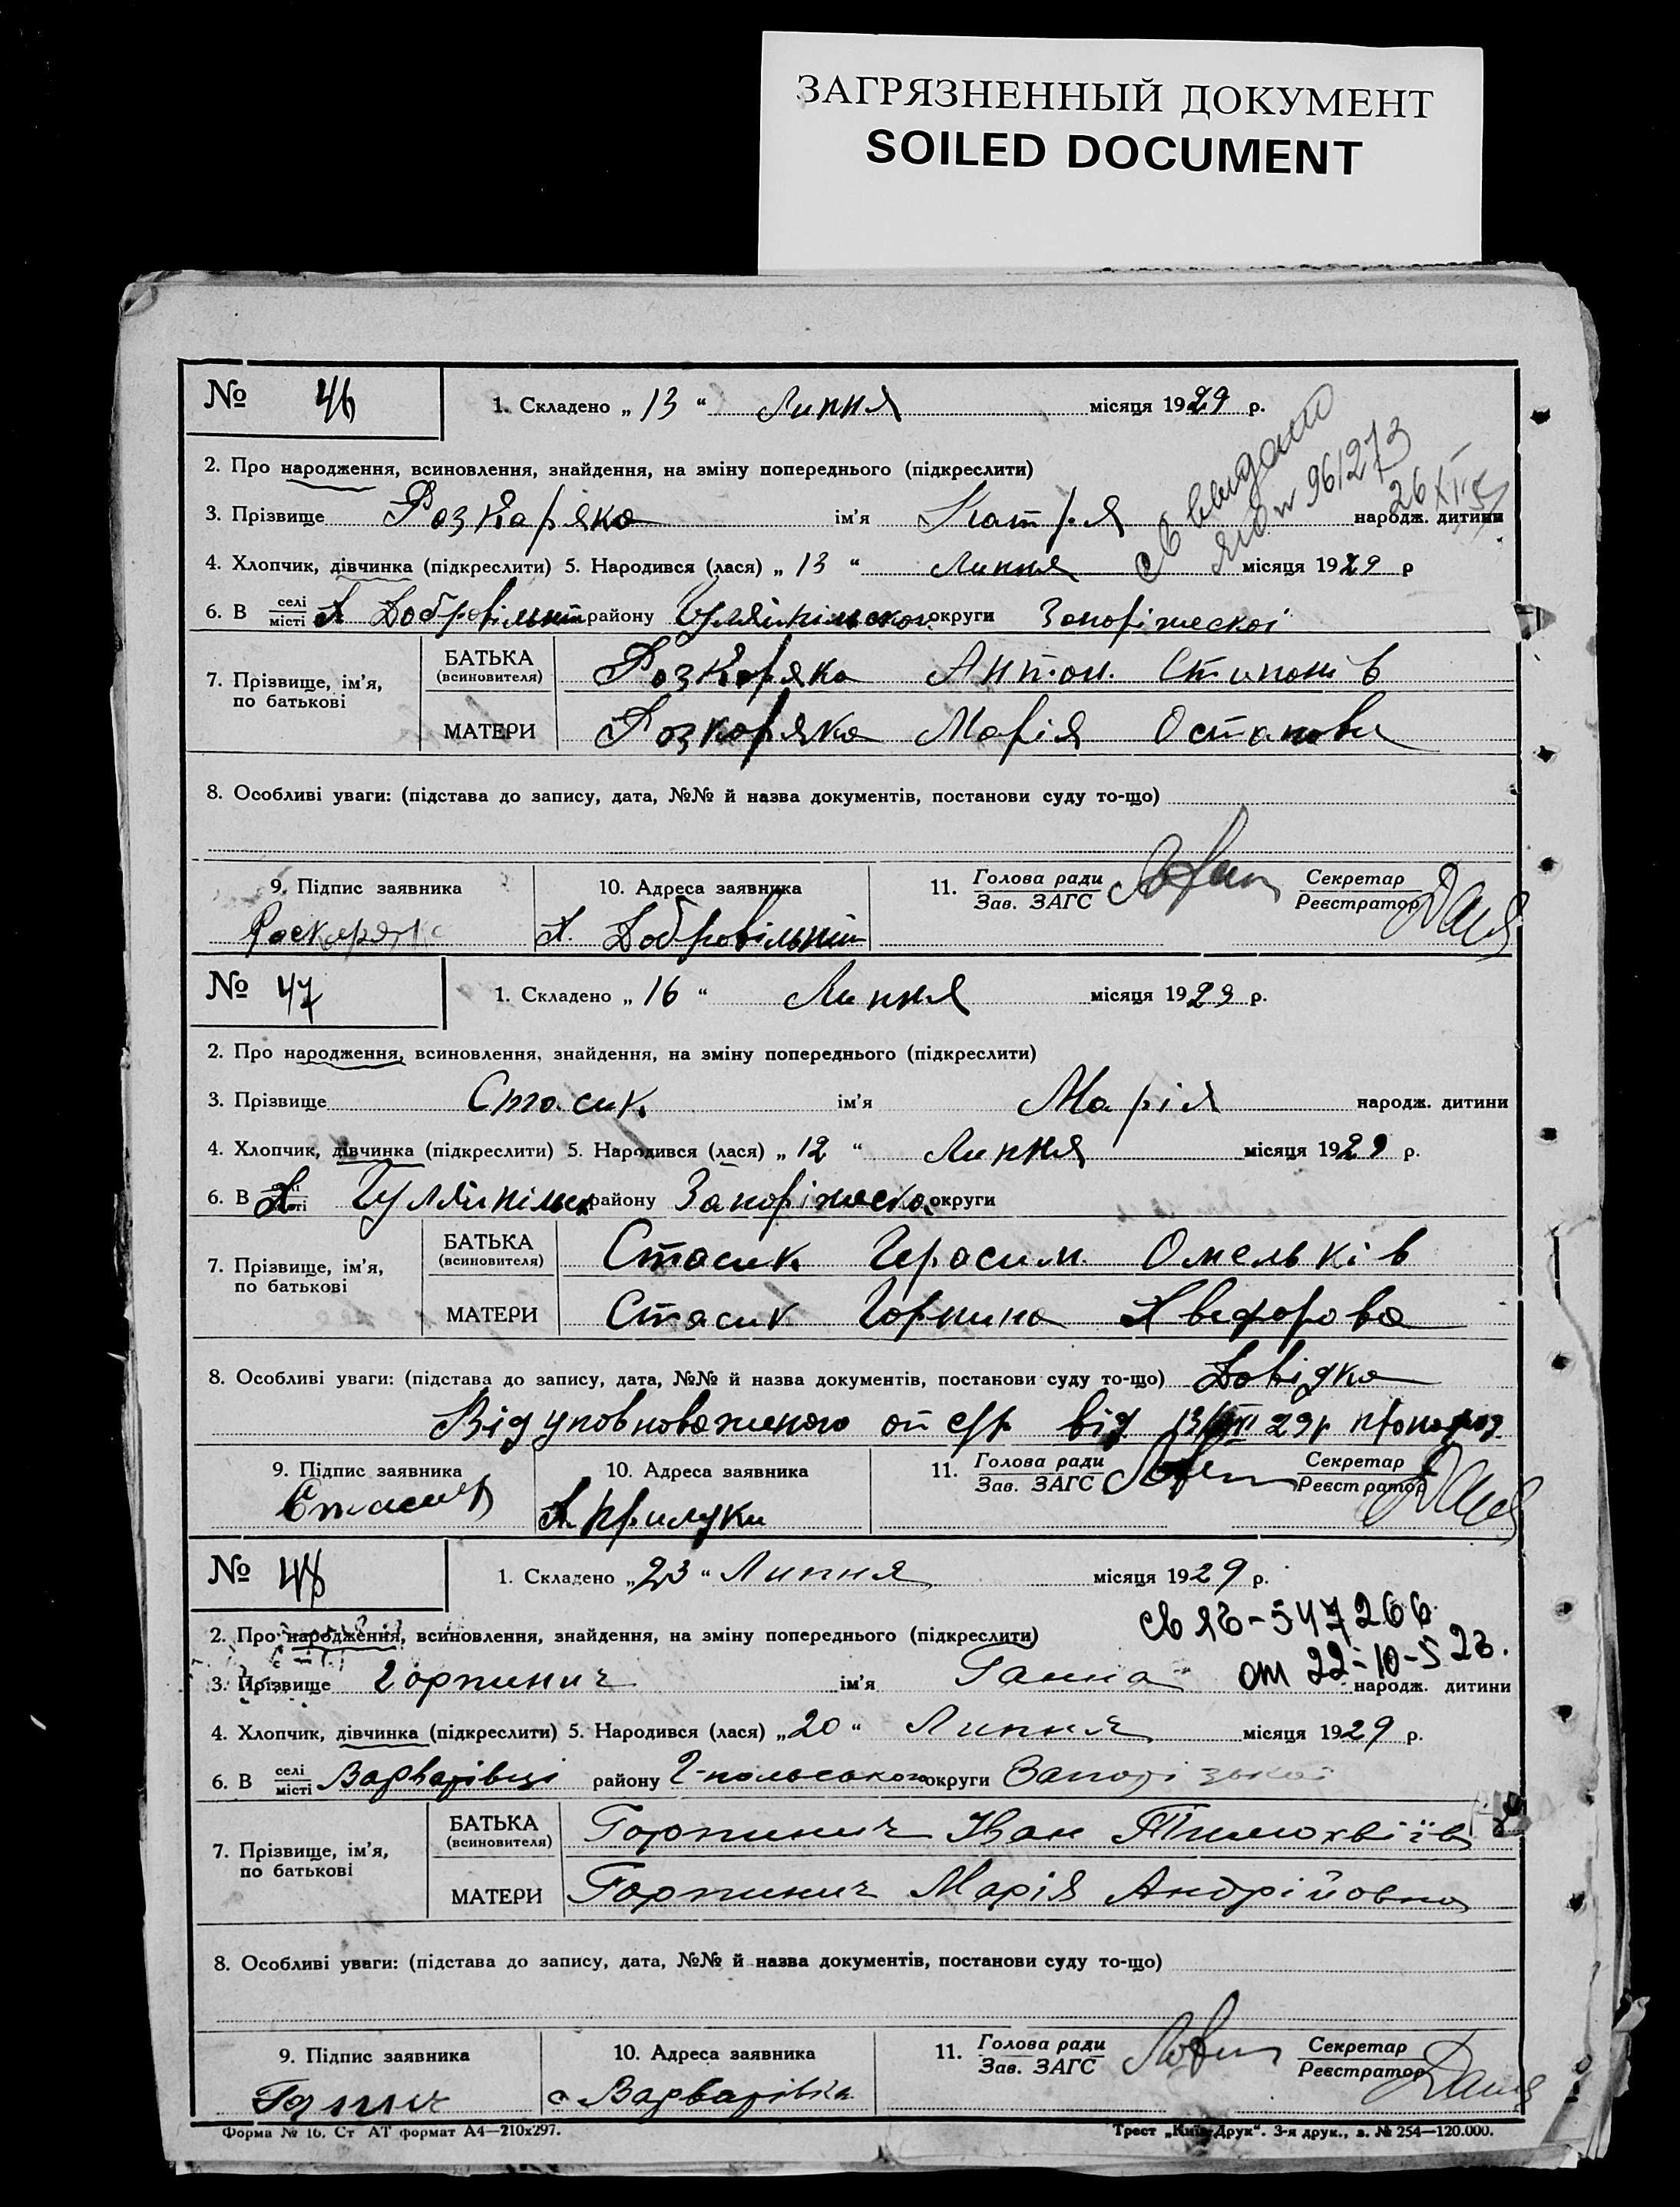 ЗАГРЯЗНЕННЫЙ ДОКУМЕНТ
SOILED DOCUMENT
№ 46 1. Складено „ 13 “ Липня місяця 1929 р.
2. Про народження, всиновлення, знайдення, на зміну попереднього (підкреслити)
3. Прізвище Розкаряка ім'я Катря народж. дитини
св выдано
ЯЮ № 961273
26 XI
4. Хлопчик, дівчинка (підкреслити) 5. Народився (лася) „ 13 “ Липня місяця 1929 р
6. В селі місті Х Добровільний району Гуляйпільского округи Запоріжескої
7. Прізвище, ім'я, по батькові
БАТЬКА (всиновителя) Розкоряка Антон
МАТЕРИ Розкоряка Марія Остапови
8. Особливі уваги: (підстава до запису, дата, №№ й назва документів, постанови суду то-що)
9. Підпис заявника 10. Адреса заявника 11. Голова ради Зав. ЗАГС Секретар Реєстратор
Роскаряка Х. Добровільний
№ 47 1. Складено „ 16 “ Липня місяця 1929 р.
2. Про народження, всиновлення, знайдення, на зміну попереднього (підкреслити)
3. Прізвище Стасик ім'я Марія народж. дитини
4. Хлопчик, дівчинка (підкреслити) 5. Народився (лася) „ 12 “ Липня місяця 1929 р.
6. В Гуляйпільск району Запоріжеско округи
7. Прізвище, ім'я, по батькові
БАТЬКА (всиновителя) Стасик Герасим Омельків
МАТЕРИ Стасик Горпина
8. Особливі уваги: (підстава до запису, дата, №№ й назва документів, постанови суду то-що) Довідка
Від уповноваженого від 29р
9. Підпис заявника 10. Адреса заявника 11. Голова ради Зав. ЗАГС Секретар Реєстратор
Стасик Х Прилуки
№ 48 1. Складено „ 23 “ Липня місяця 1929 р.
2. Про народження, всиновлення, знайдення, на зміну попереднього (підкреслити)
св ЯБ-547266
от 22-10-52г.
3. Прізвище Горпинич ім'я Ганна народж. дитини
4. Хлопчик, дівчинка (підкреслити) 5. Народився (лася) „ 20 “ Липня місяця 1929 р.
6. В селі місті Варварівці району Г-польського округи Запорізької
7. Прізвище, ім'я, по батькові
БАТЬКА (всиновителя) Горпинич Іван Тимохвіїв
МАТЕРИ Горпинич Марія Андрійовна
8. Особливі уваги: (підстава до запису, дата, №№ й назва документів, постанови суду то-що)
9. Підпис заявника 10. Адреса заявника 11. Голова ради Зав. ЗАГС Секретар Реєстратор
с Варварівка
Форма № 16. Ст АТ формат А4—210х297. Трест „Київ-Друк“. 3-я друк., з. № 254—120.000.